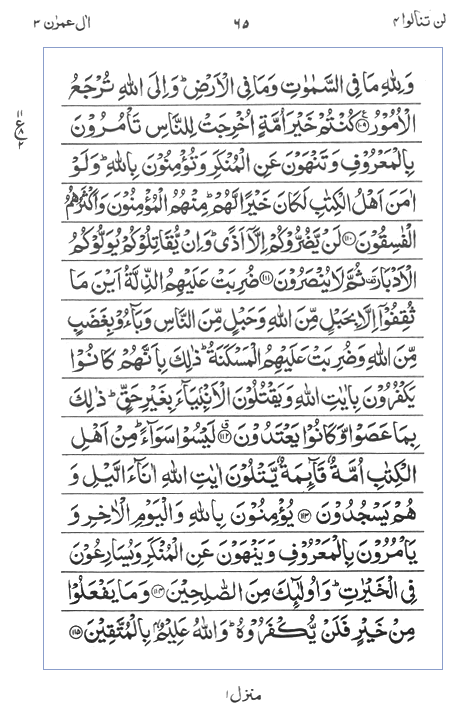 لن تنالوا ۴ ۶۵ ال عمرٰن ۳
وَلِلّٰهِ مَا فِی السَّمٰوٰتِ وَمَا فِی الْاَرْضِ ؕ وَاِلَی اللّٰهِ تُرْجَعُ
الْاُمُوْرُ ۟﴿۱۰۹﴾ كُنْتُمْ خَیْرَ اُمَّةٍ اُخْرِجَتْ لِلنَّاسِ تَاْمُرُوْنَ
بِالْمَعْرُوْفِ وَتَنْهَوْنَ عَنِ الْمُنْكَرِ وَتُؤْمِنُوْنَ بِاللّٰهِ ؕ وَلَوْ
اٰمَنَ اَهْلُ الْكِتٰبِ لَكَانَ خَیْرًا لَّهُمْ ؕ مِنْهُمُ الْمُؤْمِنُوْنَ وَاَكْثَرُهُمُ
الْفٰسِقُوْنَ ﴿۱۱۰﴾ لَنْ یَّضُرُّوْكُمْ اِلَّاۤ اَذًی ؕ وَاِنْ یُّقَاتِلُوْكُمْ یُوَلُّوْكُمُ
الْاَدْبَارَ ۟ ثُمَّ لَا یُنْصَرُوْنَ ﴿۱۱۱﴾ ضُرِبَتْ عَلَیْهِمُ الذِّلَّةُ اَیْنَ مَا
ثُقِفُوْۤا اِلَّا بِحَبْلٍ مِّنَ اللّٰهِ وَحَبْلٍ مِّنَ النَّاسِ وَبَآءُوْ بِغَضَبٍ
مِّنَ اللّٰهِ وَضُرِبَتْ عَلَیْهِمُ الْمَسْكَنَةُ ؕ ذٰلِكَ بِاَنَّهُمْ كَانُوْا
یَكْفُرُوْنَ بِاٰیٰتِ اللّٰهِ وَیَقْتُلُوْنَ الْاَنْۢبِیَآءَ بِغَیْرِ حَقٍّ ؕ ذٰلِكَ
بِمَا عَصَوْا وَّكَانُوْا یَعْتَدُوْنَ ﴿۱۱۲﴾ لَیْسُوْا سَوَآءً ؕ مِنْ اَهْلِ
الْكِتٰبِ اُمَّةٌ قَآئِمَةٌ یَّتْلُوْنَ اٰیٰتِ اللّٰهِ اٰنَآءَ الَّیْلِ وَ
هُمْ یَسْجُدُوْنَ ﴿۱۱۳﴾ یُؤْمِنُوْنَ بِاللّٰهِ وَالْیَوْمِ الْاٰخِرِ وَ
یَاْمُرُوْنَ بِالْمَعْرُوْفِ وَیَنْهَوْنَ عَنِ الْمُنْكَرِ وَیُسَارِعُوْنَ
فِی الْخَیْرٰتِ ؕ وَاُولٰٓئِكَ مِنَ الصّٰلِحِیْنَ ﴿۱۱۴﴾ وَمَا یَفْعَلُوْا
مِنْ خَیْرٍ فَلَنْ یُّكْفَرُوْهُ ؕ وَاللّٰهُ عَلِیْمٌۢ بِالْمُتَّقِیْنَ ﴿۱۱۵﴾
منزل ۱